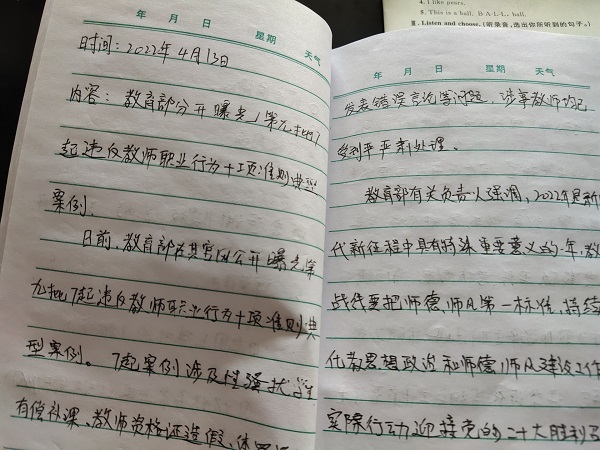 4. I like pears.
5. This is a ball, B-A-L-L, ball.
II. Listen and choose. (听录音,选出你所听到的句子。)
年 月 日 星期 天气
时间:2022年4月13日
内容:教育部公开曝光第九批7
起违反教师职业行为十项准则典型
案例.
日前,教育部在其官网公开曝光第
九批7起违反教师职业行为十项准则典
型案例。7起案例涉及性骚扰学生
有偿补课、教师资格证造假、体罚
年 月 日 星期 天气
发表错误言论等问题,涉事教师均已
受到严肃处理。
教育部有关负责人强调,2022年是新
代新征程中具有特殊重要意义的一年,教
战线要把师德师风第一标准,持续
化教思想政治和师德师风建设工作
实际行动迎接党的二十大胜利召